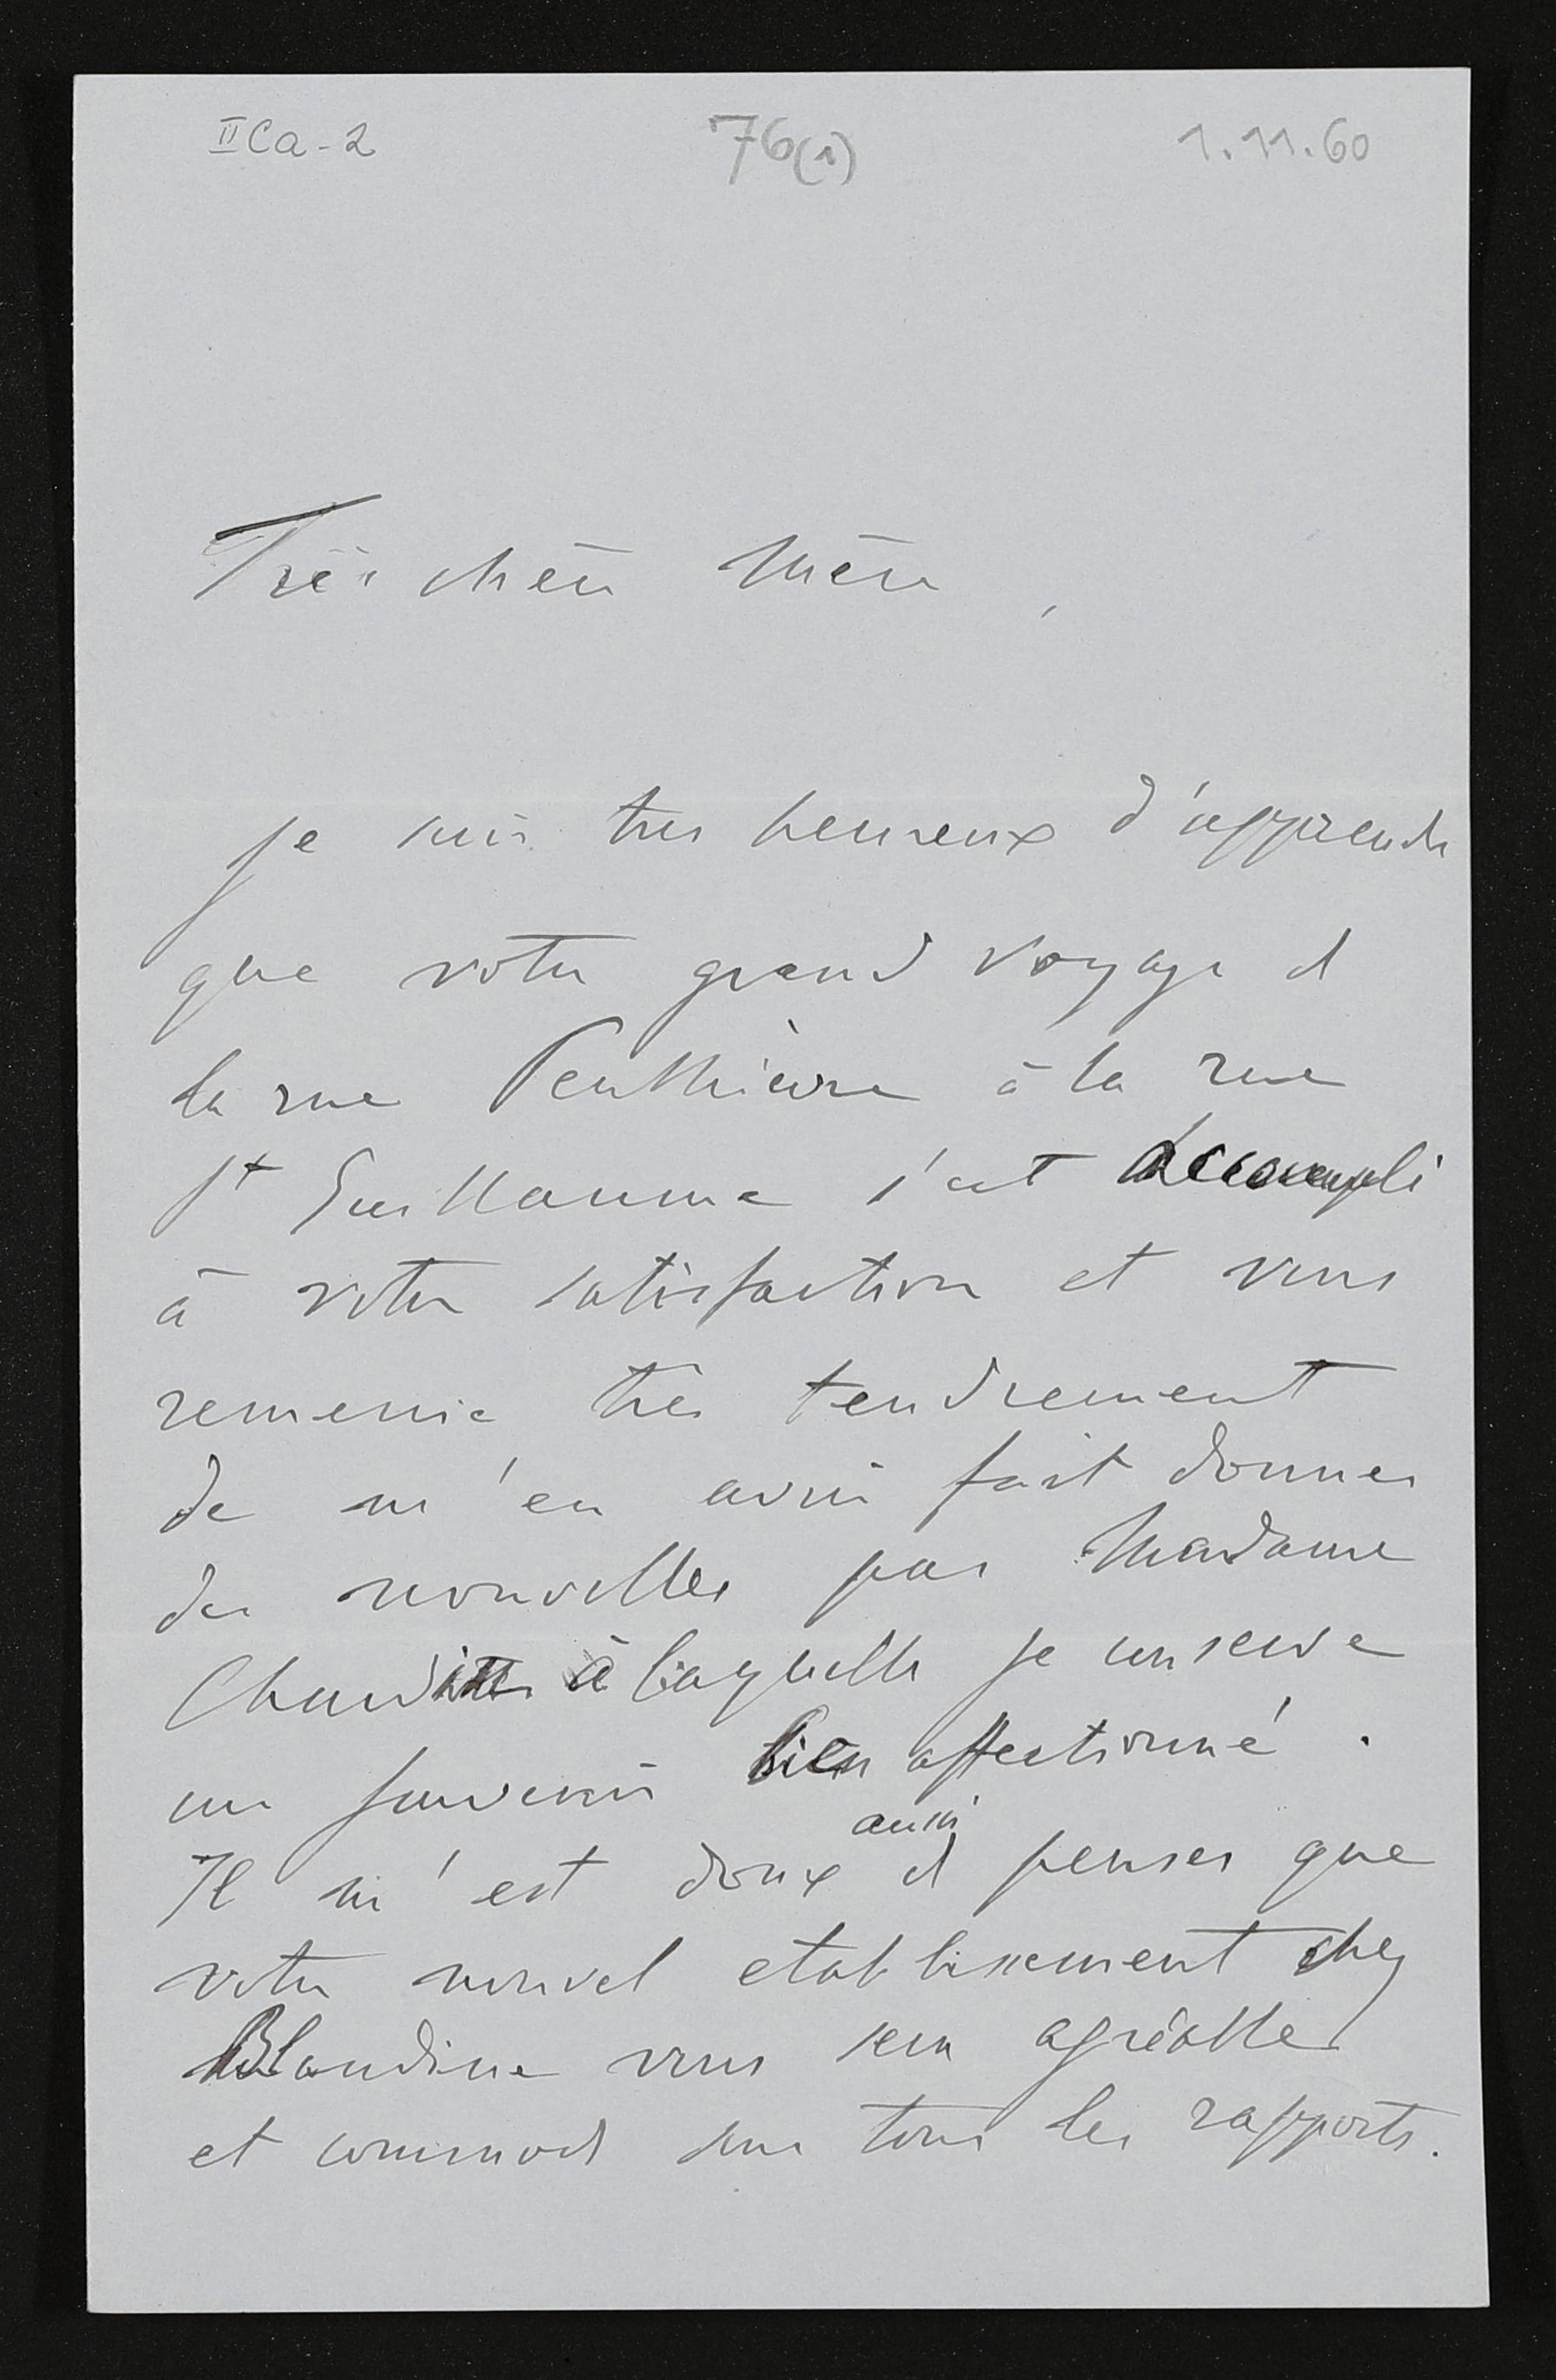 IICa-2 76(1) 1.11.60
Très chère Mère,
je suis très heureux d'apprendre
que votre grand voyage de
la rue Penthièvre à la rue
St Guillaume s'est accompli
à votre satisfaction et vous
remercie très tendrement
de m'en avoir fait donner
des nouvelles par Madame
à laquelle je conserve
un souvenir bien affectionné.
aussi
Il m'est doux de penser que
votre nouvel etablissement chez
Blandine vous sera agréable
et commode sous tous les rapports.